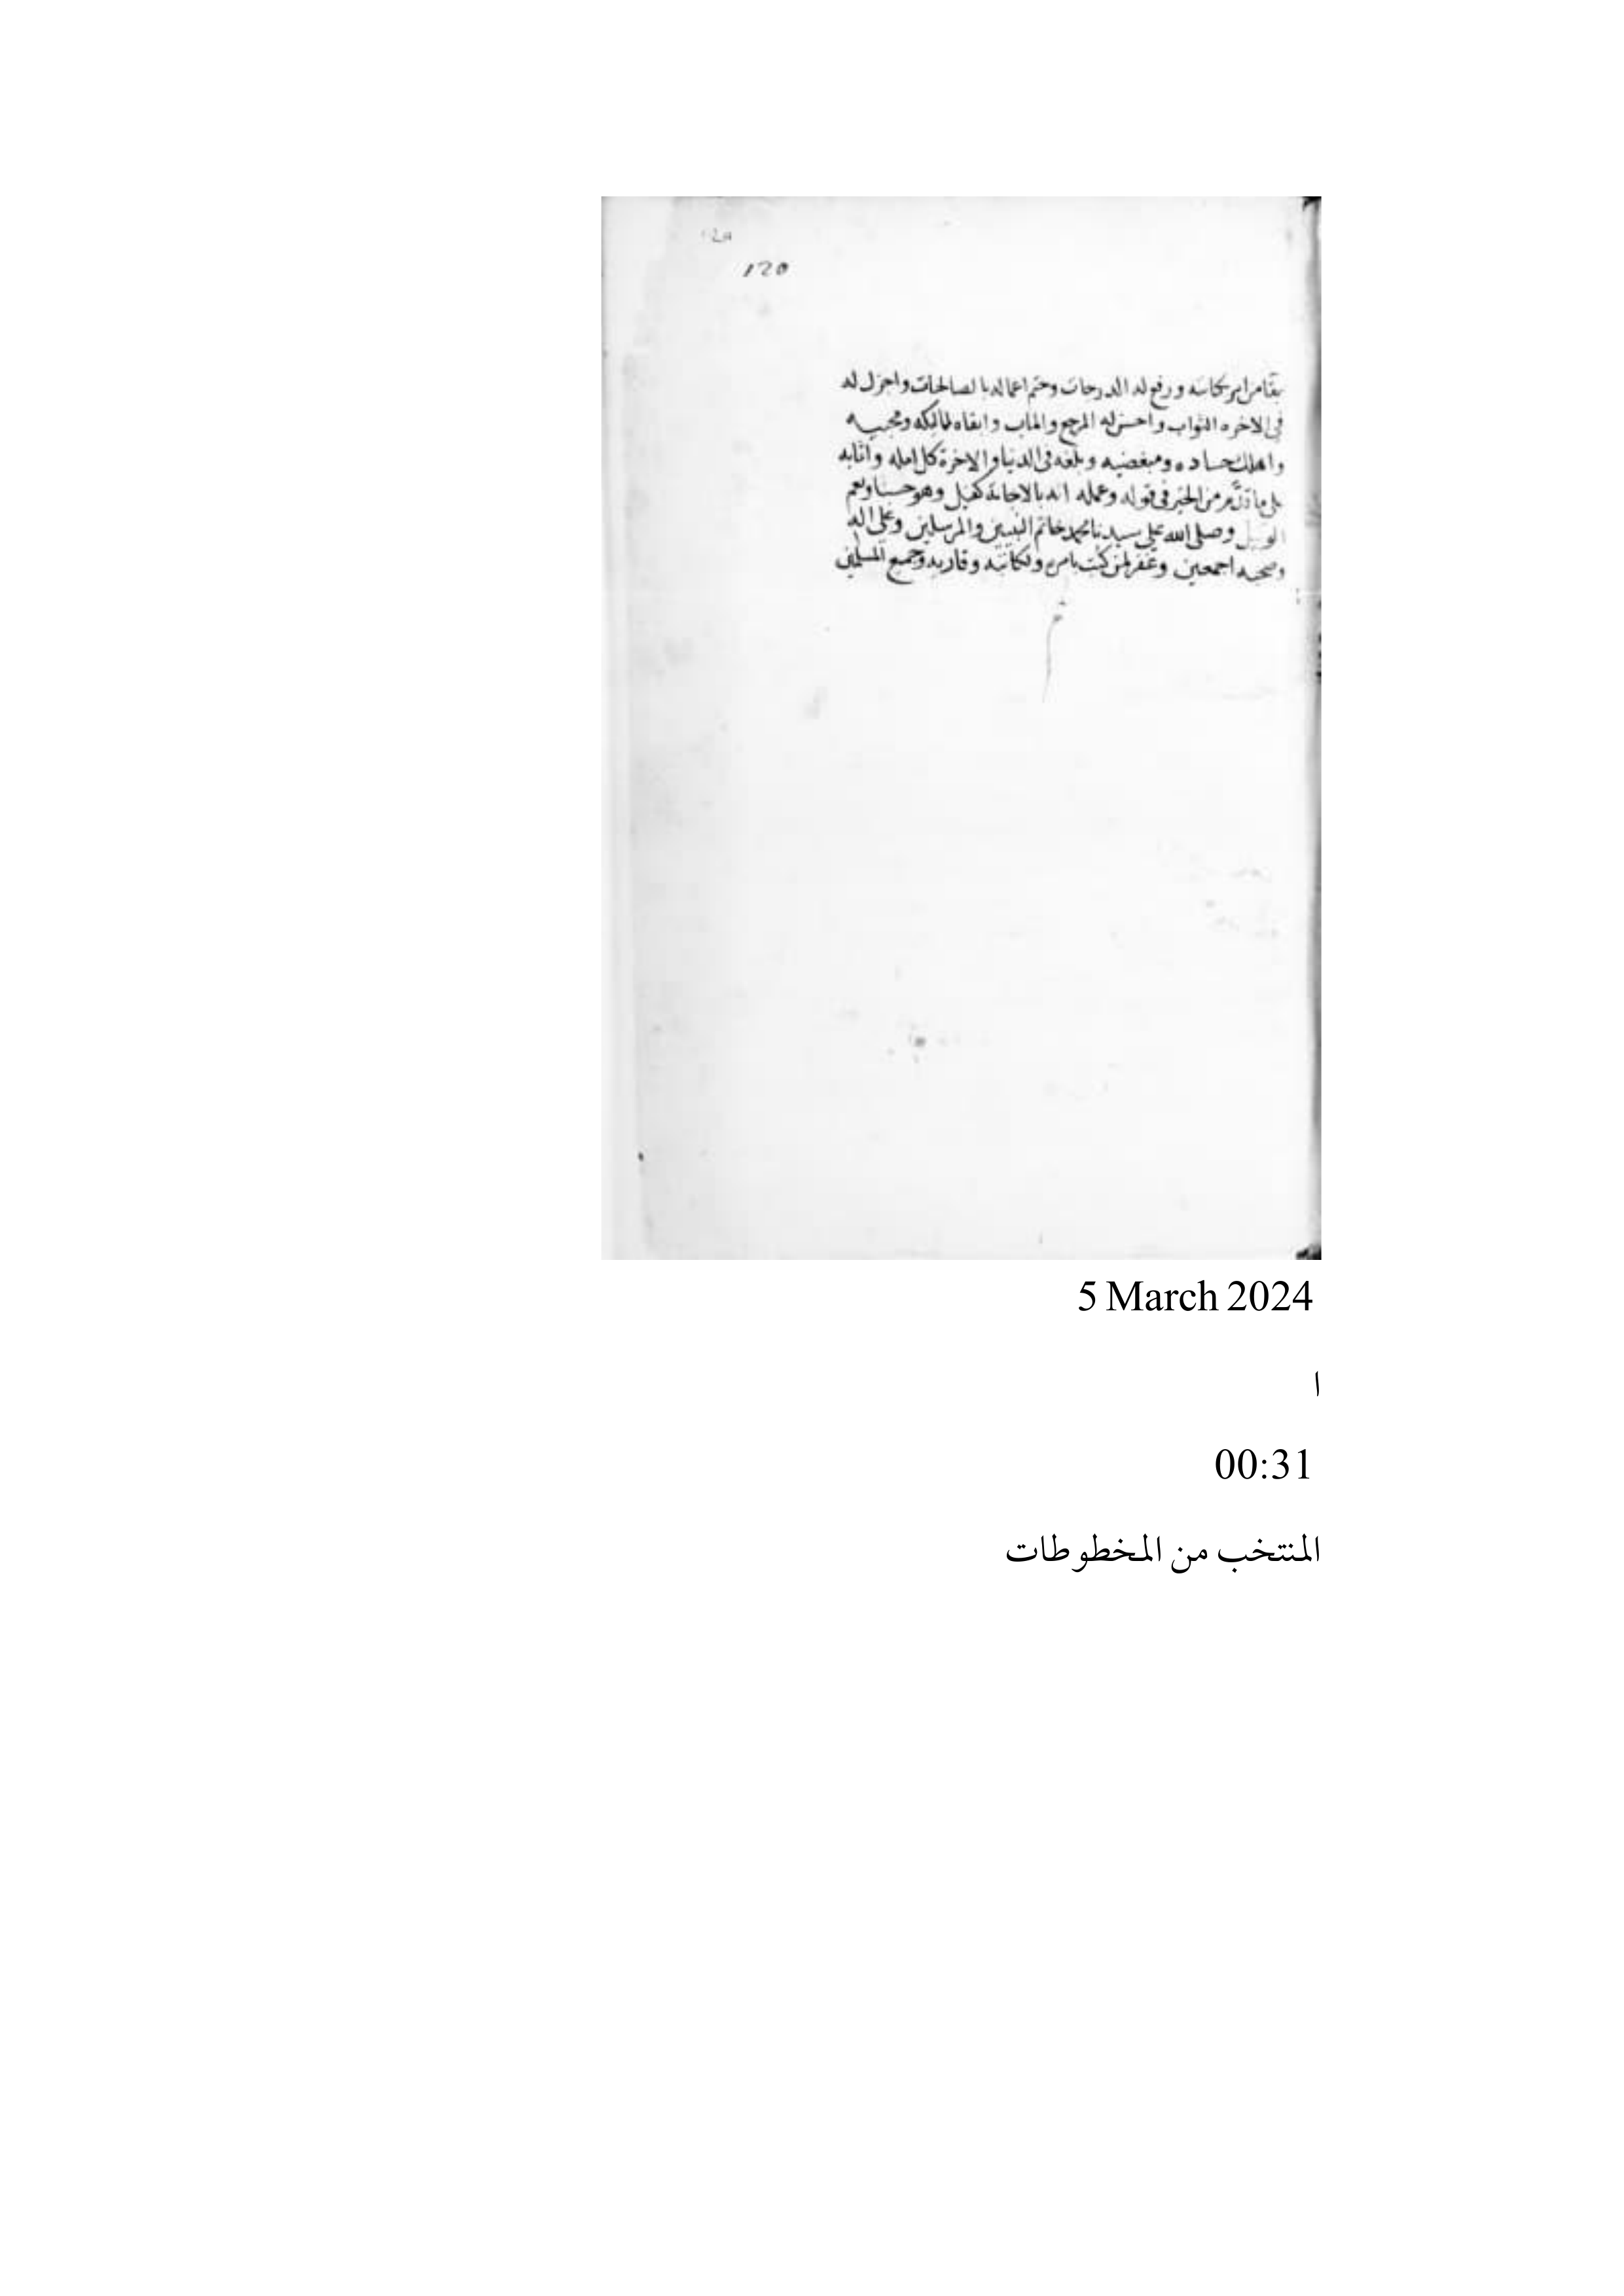 120
ورفع له الدرجات وختم اعماله بالصالحات واجزل له
فى الاخره الثواب واحسن له المرجع والماب وابقاه لماليكه ومحبيه
واهلك حساده ومبغضيه وبلغه فى الدنيا والاخرة كل امله واثابه
على ما من الخير فى قوله وعمله انه بالاجابة كفيل وهو حسبنا ونعم
الوكيل وصلى الله على سيدنا محمد خاتم النبيين والمرسلين وعلى اله
وصحبه اجمعين وغفر لمن كتب بامره ولكاتبه وقاريه وجميع المسلمين
5 March 2024
ا
00:31
المنتخب من المخطوطات